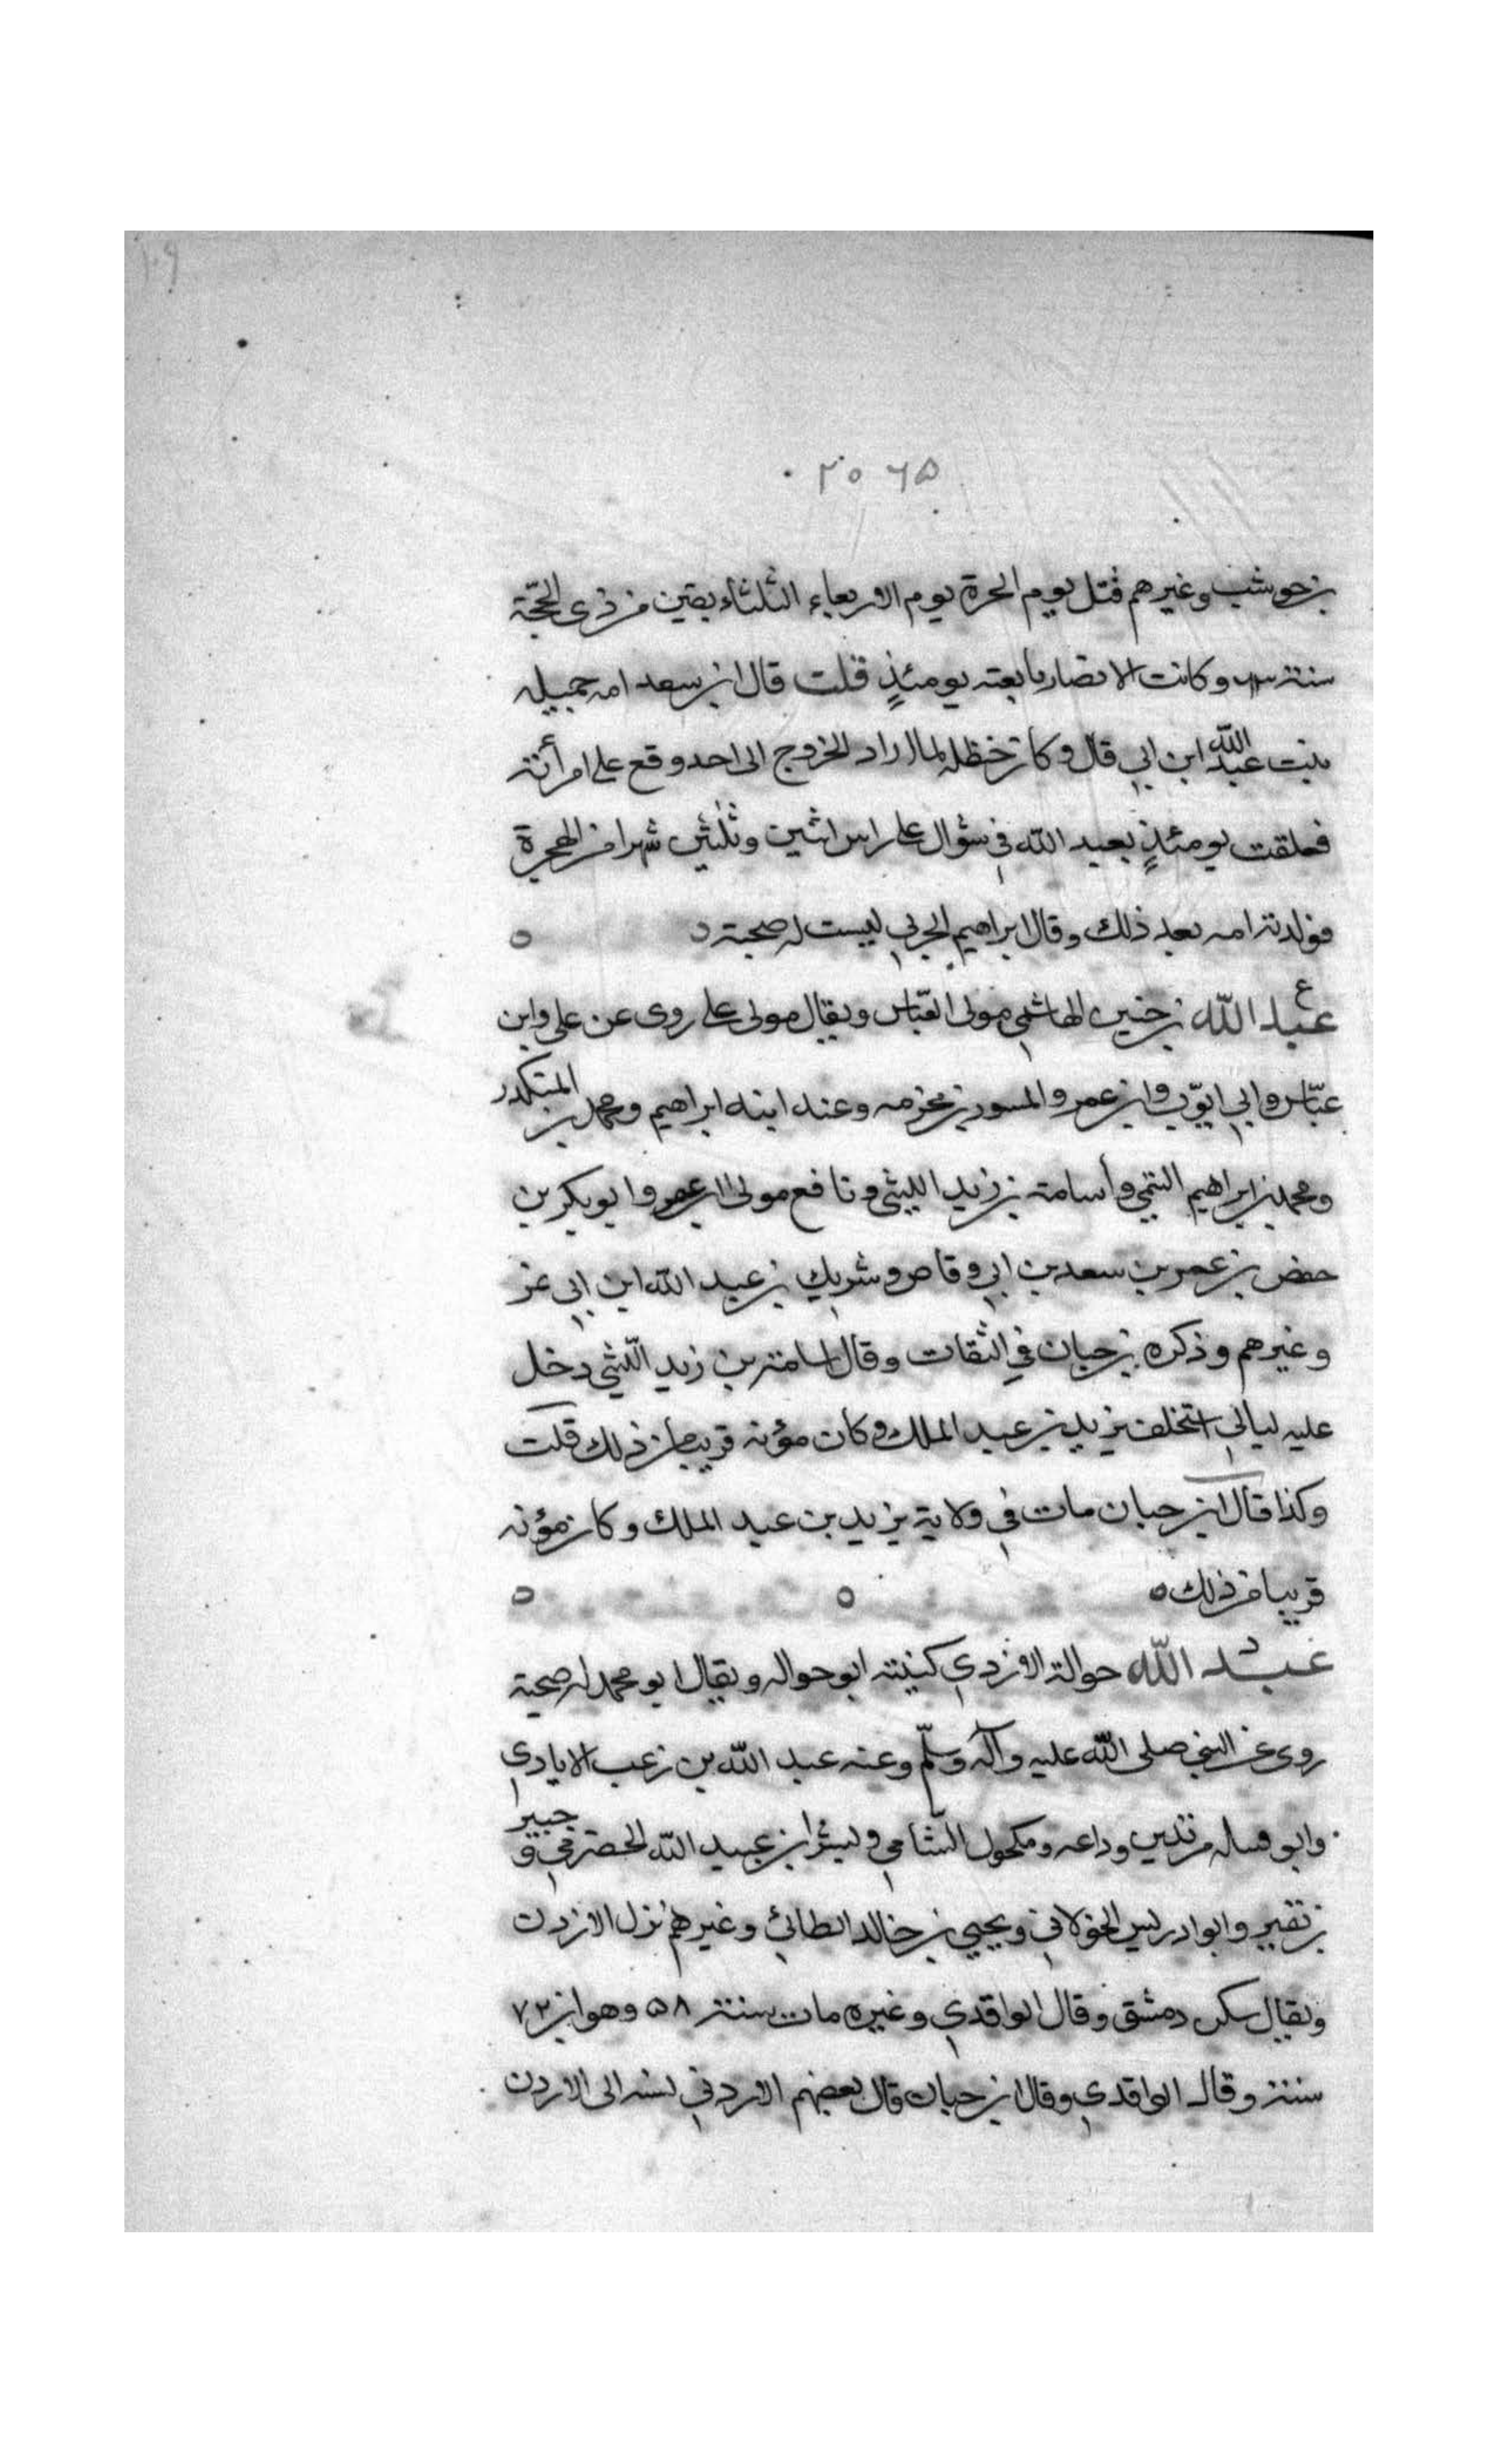 ١٠٩
٢٠٦٥
بن حوشب وغيرهم قتل يوم الحرة يوم الاربعاء الثلثاء بقين من ذى الحجّة
سنة ٦٣ وكانت الانصار بايعته يومئذٍ قلت قال ابن سعد امه جميله
بنت عبد الله ابن ابي قال وكان حنظله لما اراد الخروج الى احد وقع على امرأته
فعلقت يومئذٍ بعبد الله في سؤال على راس اثنين وثلثين شهرا من الهجرة
فولدته امه بعد ذلك وقال ابراهيم الحربي ليست له صحبة
ع
عبد الله بن حنين الهاشمي مولى العبّاس ويقال مولى على روى عن على وابن
عبّاس وابي ايوّب وابن عمر والمسور بن مخرمه وعنه ابنه ابراهيم ومحمد بن المنكدر
ومحمد بن ابراهيم التيمي وأسامة بن زيد الليثى ونافع مولى ابن عمر وابو بكر بن
حفص بن عمر بن سعد بن ابي وقاص وشريك بن عبد الله ابن ابي نمر
وغيرهم وذكره بن حبان في الثقات وقال اسامة بن زيد اللّيثي دخل
عليه ليالي استخلف يزيد بن عبد الملك وكان موته قريبا من ذلك قلت
وكذا قال ابن حبان مات في ولاية يزيد بن عبد الملك وكان موته
قريبا من ذلك
د
عبد الله حوالة الازدي كنيته ابو حواله ويقال ابو محمد له صحبة
روى عن النبي صلى الله عليه وآله وسلّم وعنه عبد الله بن زعب الايادي
وابو قتيله مرثد بن وداعه ومكحول الشّامي وبسر ابن عبيد الله الحضرمي و جبير
بن نفير وابو ادريس الخولاني ويحيى بن خالد الطائي وغيرهم نزل الازدن
ويقال سكن دمشق وقال الواقدي وغيره مات سنة ٥٨ وهو ابن ٧٢
سنة وقال الواقدي وقال ابن حبان قال بعضهم الاردني نسبه الى الاردن